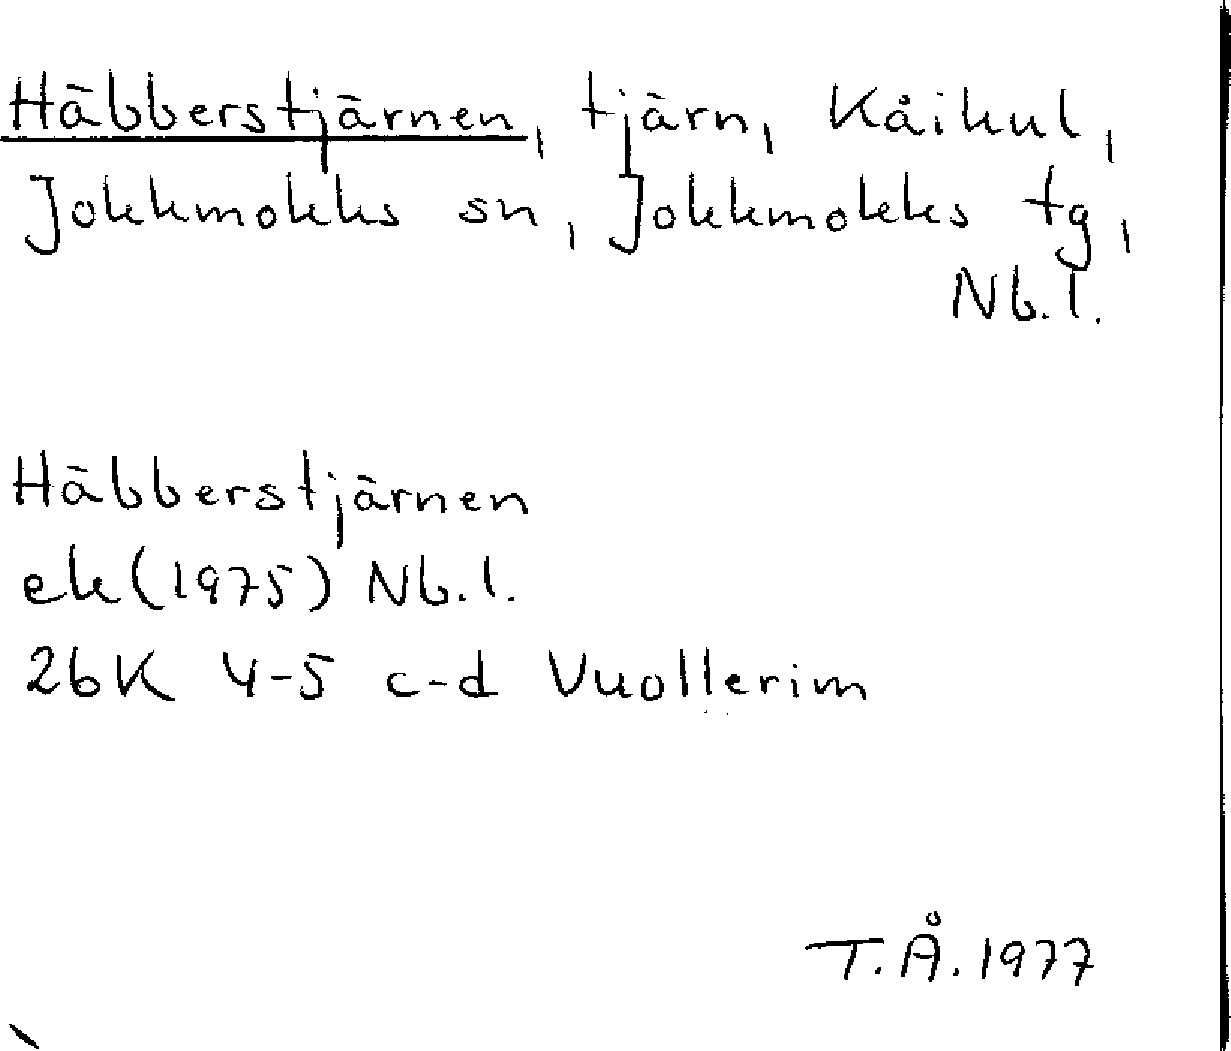 Häbberstjärnen, tjärn, Kåikul,
Jokkmokks sn, Jokkmokks tg,
Nb.l.
Häbberstjärnen
ek(1975) Nb.l.
26K 4-5 c-d Vuollerim
T.Å.1977